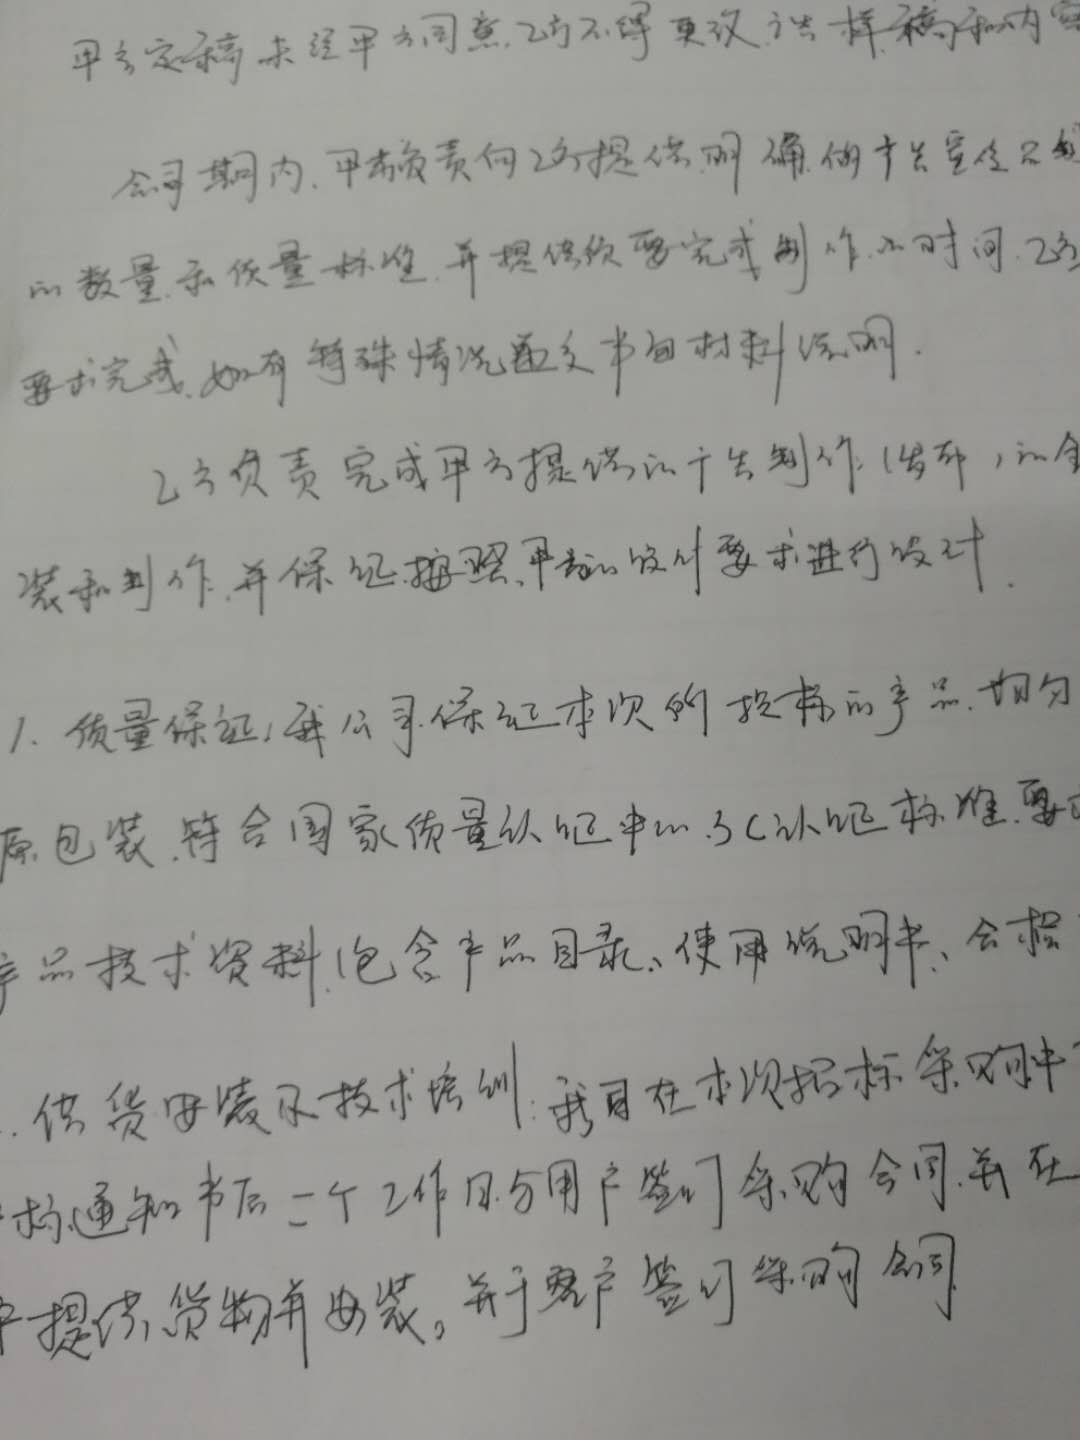 甲方定稿未经甲方同意.乙方不得更改广告样稿和内容
合同期内.甲方负责向乙方提供明确的广告宣传
的数量.和质量标准.并提供须要完成制作的时间.乙方
要求完成.如有特殊情况递交书面材料说明.
乙方负责完成甲方提供的广告制作(发布)的
装和制作.并保证按照甲方的设计要求进行设计.
1.质量保证:我公司保证本次的投标的产品.均为
原包装.符合国家质量认证中的.3C认证标准.要
产品技术资料.包含产品目录、使用说明书、合格
.供货安装及技术培训:我司在本次招标采购中
标通知书后二个工作日与用户签订采购合同.并在
提供货物并安装。并于客户签订采购合同.